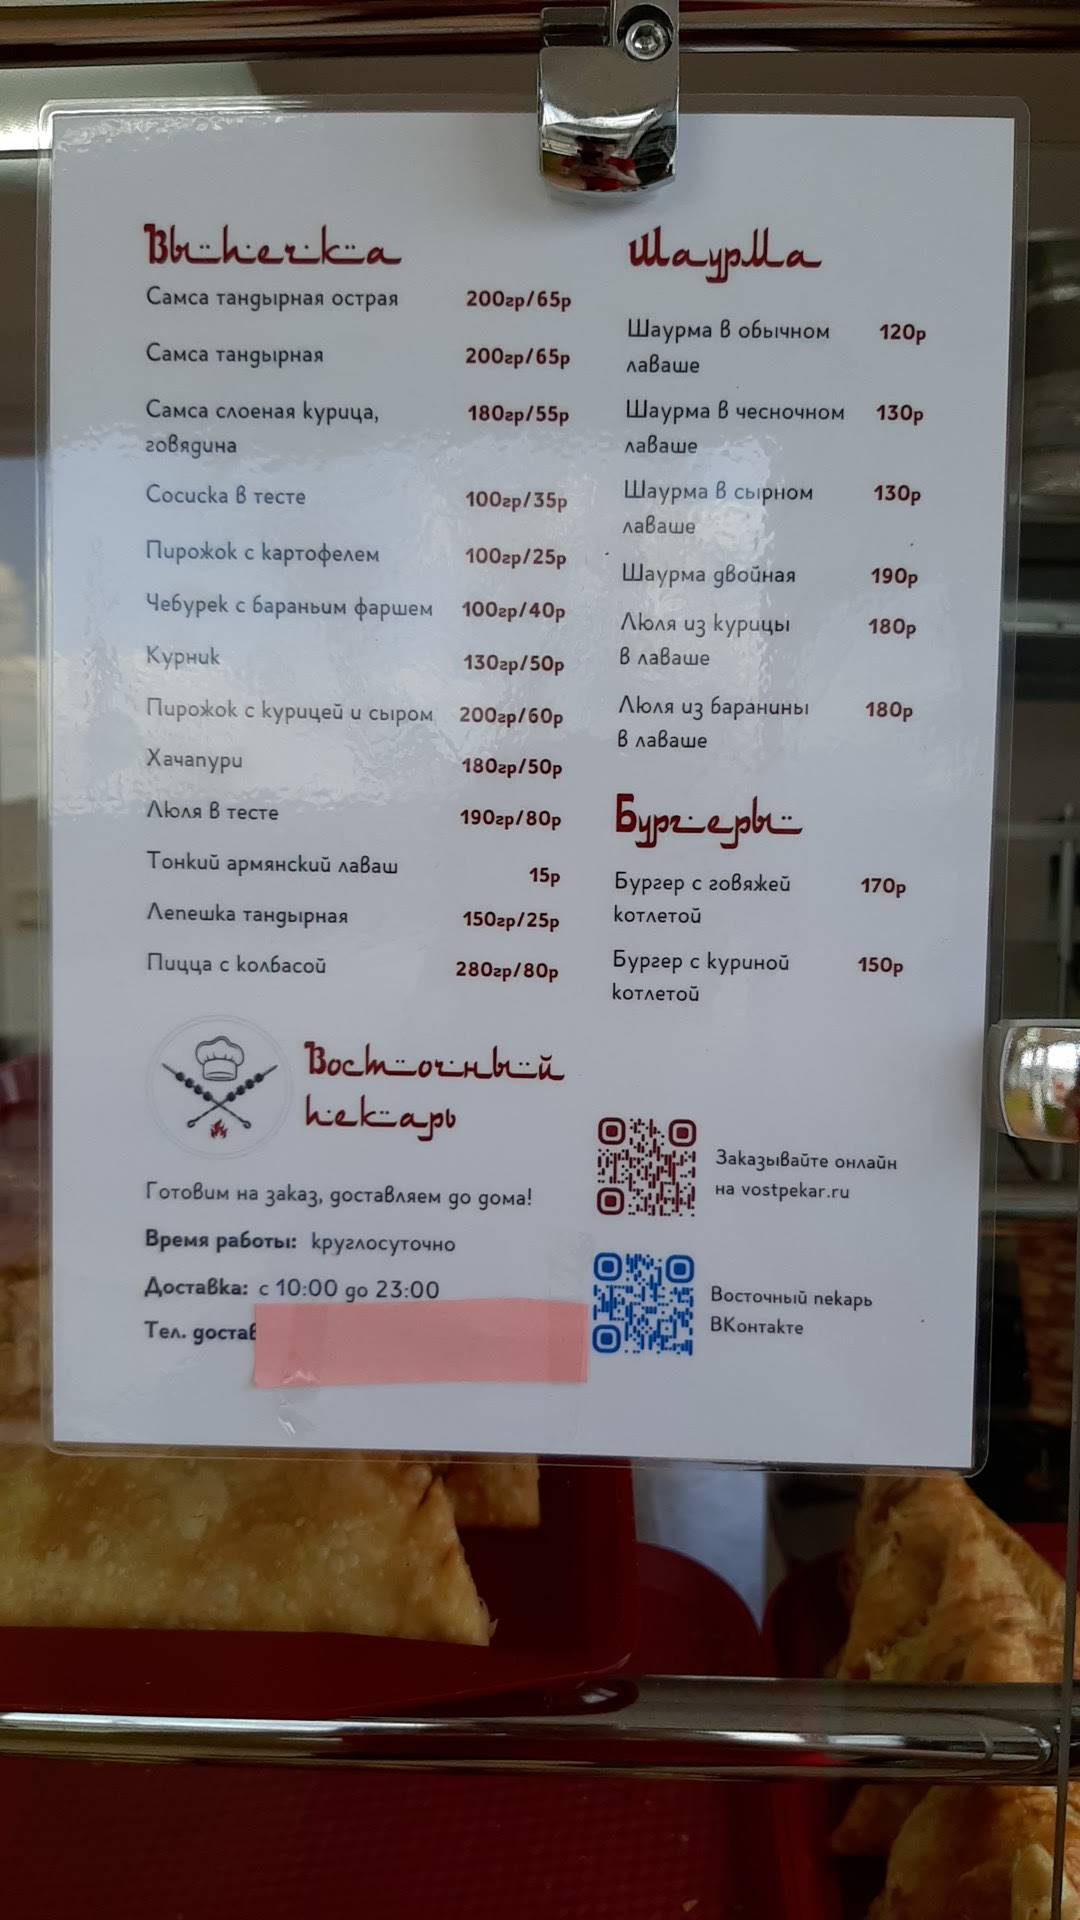 Выпечка
Самса тандырная острая 200гр/65р
Самса тандырная 200гр/65р
Самса слоеная курица, 180гр/55р
говядина
Сосиска в тесте 100гр/35р
Пирожок с картофелем 100гр/25р
Чебурек с бараньим фаршем 100гр/40р
Курник 130гр/50р
Пирожок с курицей и сыром 200гр/60р
Хачапури 180гр/50р
Люля в тесте 190гр/80р
Тонкий армянский лаваш 15р
Лепешка тандырная 150гр/25р
Пицца с колбасой 280гр/80р
Шаурма
Шаурма в обычном 120р
лаваше
Шаурма в чесночном 130р
лаваше
Шаурма в сырном 130р
лаваше
Шаурма двойная 190р
Люля из курицы 180р
в лаваше
Люля из баранины 180р
в лаваше
Бургеры
Бургер с говяжей 170р
котлетой
Бургер с куриной 150р
котлетой
Восточный
пекарь
Готовим на заказ, доставляем до дома!
Время работы: круглосуточно
Доставка: с 10:00 до 23:00
Тел. достав
Заказывайте онлайн
на vostpekar.ru
Восточный пекарь
ВКонтакте